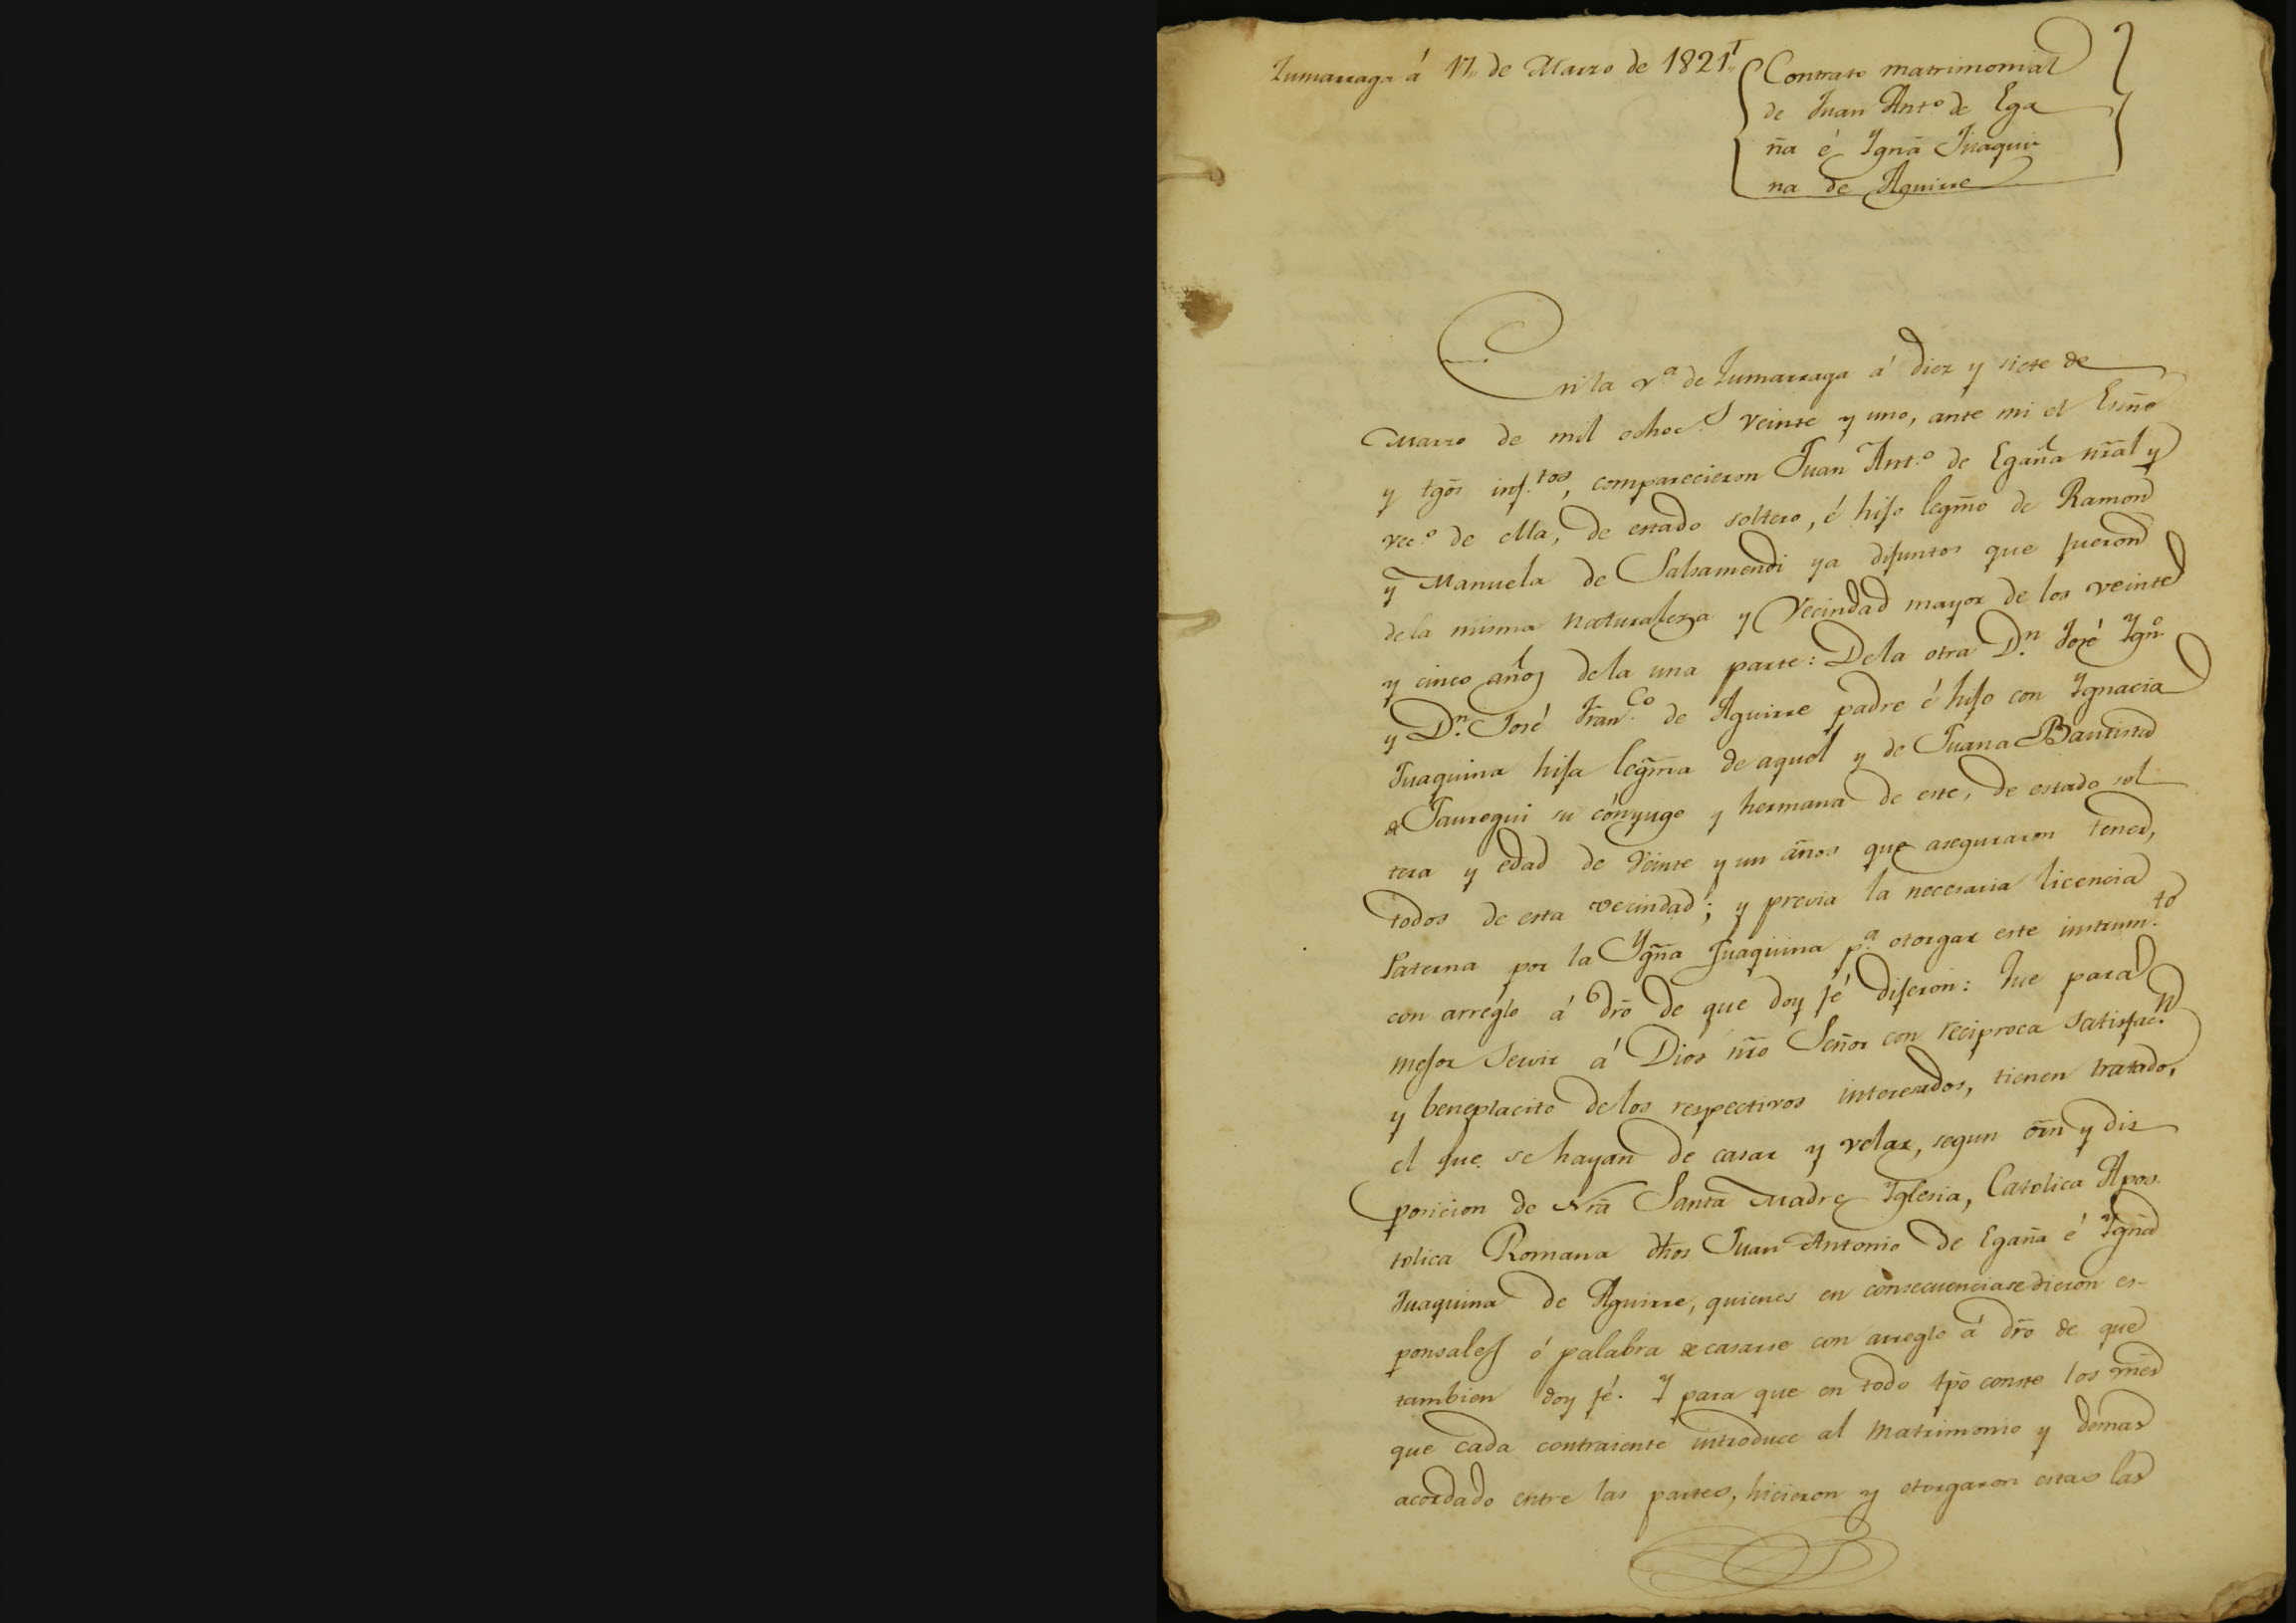 Zumarraga á 17,, de Marzo de 1821,,
Contrato matrimonial
de Juan Ant.º de Ega
ña é Ygñā Juaqui
na de Aguirre
En la v.ª de Zumarraga á diez y siete de
Marzo de mil ochoc.s veinte y uno, ante mi el Esnō
y tgōs inf.tos, comparecieron Juan Ant.º de Egaña nrāl y
vec.º de ella, de estado soltero, é hijo legm̄o de Ramon
y Manuela de Salsamendi ya difuntos que fueron
de la misma naturaleza y Vecindad mayor de los veinte
y cinco años de la una parte: De la otra D.n José Ygn.º
y D.n José Fran.co de Aguirre padre é hijo con Ygnacia
Juaquina hija legm̄a de aquel y de Juana Bautista
de Jauregui su cónyuge y hermana de este, de estado sol
tera y edad de Veinte y un años que aseguraron tener,
todos de esta vecindad; y previa la necesaria licencia
Paterna por la Ygñā Juaquina p.ª otorgar este instrum.to
con arreglo á drō de que doy fé dijeron: Que para
mejor Servir á Dios nrō Señor con reciproca satisfac.n
y beneplacito de los respectivos interesados, tienen tratado,
el que se hayan de casar y velar, segun orn̄ y dis
posicion de Nrā Santa Madre Yglesia, Catolica Apos
tolica Romana dhos Juan Antonio de Egaña é Ygñā
Juaquina de Aguirre, quienes en consecuencia se dieron es-
ponsales ó palabra de casarse con arreglo á drō de que
tambien doy fé. Y para que en todo tpō conste los vnēs
que cada contraiente introduce al Matrimonio y demas
acordado entre las partes, hicieron y otorgaron estas las